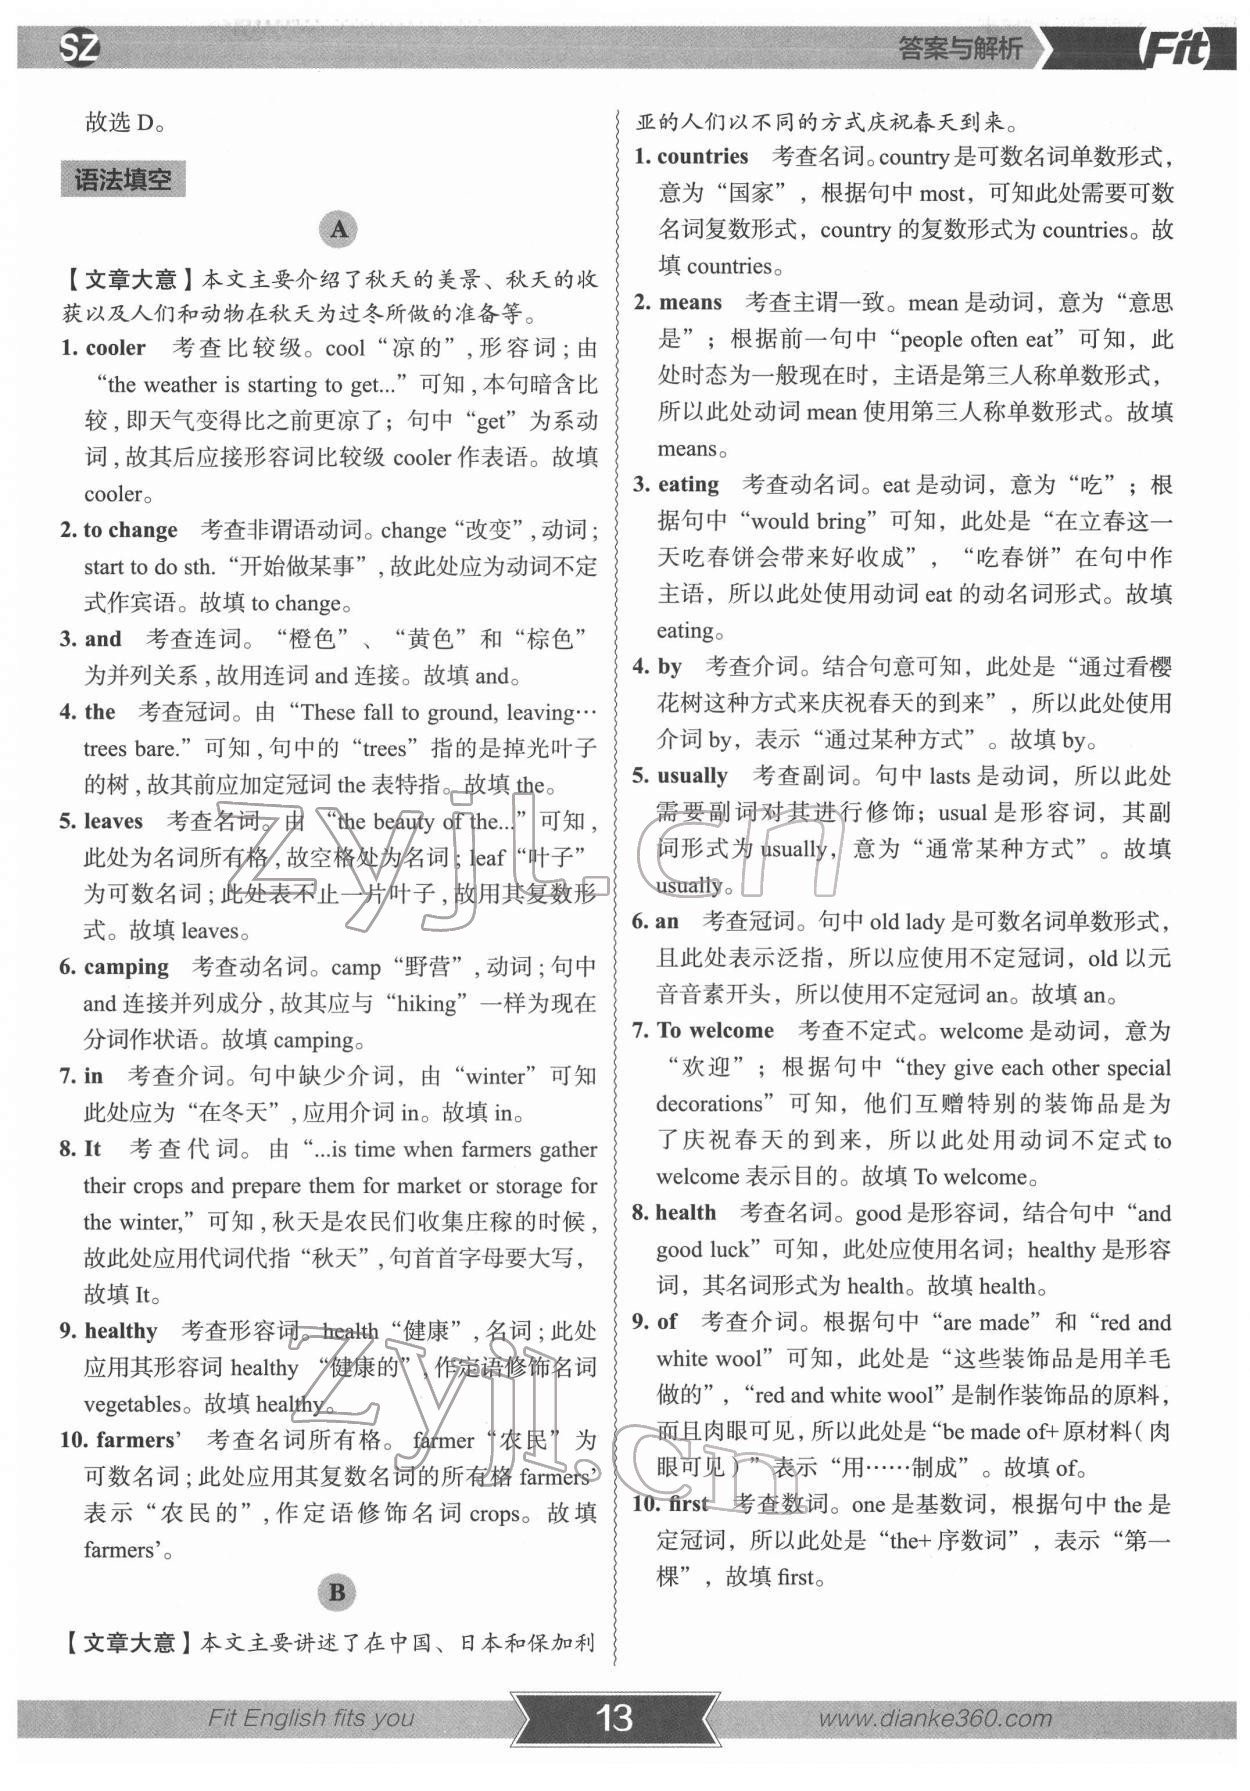 SZ
答案与解析
Fit
故选 D。
语法填空
A
【文章大意】本文主要介绍了秋天的美景、秋天的收
获以及人们和动物在秋天为过冬所做的准备等。
1. cooler 考查比较级。cool“凉的”,形容词;由
“the weather is starting to get...”可知,本句暗含比
较,即天气变得比之前更凉了;句中“get”为系动
词,故其后应接形容词比较级 cooler 作表语。故填
cooler。
2. to change 考查非谓语动词。change“改变”,动词;
start to do sth.“开始做某事”,故此处应为动词不定
式作宾语。故填 to change。
3. and 考查连词。“橙色”、“黄色”和“棕色”
为并列关系,故用连词 and 连接。故填 and。
4. the 考查冠词。由“These fall to ground, leaving…
trees bare.”可知,句中的“trees”指的是掉光叶子
的树,故其前应加定冠词 the 表特指。故填 the。
5. leaves 考查名词。由“the beauty of the...”可知,
此处为名词所有格,故空格处为名词;leaf“叶子”
为可数名词;此处表不止一片叶子,故用其复数形
式。故填 leaves。
6. camping 考查动名词。camp“野营”,动词;句中
and 连接并列成分,故其应与“hiking”一样为现在
分词作状语。故填 camping。
7. in 考查介词。句中缺少介词，由“winter”可知
此处应为“在冬天”,应用介词 in。故填 in。
8. It 考查代词。由“...is time when farmers gather
their crops and prepare them for market or storage for
the winter,”可知,秋天是农民们收集庄稼的时候,
故此处应用代词代指“秋天”,句首首字母要大写,
故填 It。
9. healthy 考查形容词。health“健康”,名词;此处
应用其形容词 healthy “健康的”,作定语修饰名词
vegetables。故填 healthy。
10. farmers’ 考查名词所有格。farmer“农民”为
可数名词;此处应用其复数名词的所有格 farmers’
表示“农民的”,作定语修饰名词 crops。故填
farmers’。
B
【文章大意】本文主要讲述了在中国、日本和保加利
亚的人们以不同的方式庆祝春天到来。
1. countries 考查名词。country 是可数名词单数形式，
意为“国家”，根据句中 most，可知此处需要可数
名词复数形式，country 的复数形式为 countries。故
填 countries。
2. means 考查主谓一致。mean 是动词，意为“意思
是”；根据前一句中“people often eat”可知，此
处时态为一般现在时，主语是第三人称单数形式，
所以此处动词 mean 使用第三人称单数形式。故填
means。
3. eating 考查动名词。eat 是动词，意为“吃”；根
据句中“would bring”可知，此处是“在立春这一
天吃春饼会带来好收成”，“吃春饼”在句中作
主语，所以此处使用动词 eat 的动名词形式。故填
eating。
4. by 考查介词。结合句意可知，此处是“通过看樱
花树这种方式来庆祝春天的到来”，所以此处使用
介词 by，表示“通过某种方式”。故填 by。
5. usually 考查副词。句中 lasts 是动词，所以此处
需要副词对其进行修饰；usual 是形容词，其副
词形式为 usually，意为“通常某种方式”。故填
usually。
6. an 考查冠词。句中 old lady 是可数名词单数形式，
且此处表示泛指，所以应使用不定冠词，old 以元
音音素开头，所以使用不定冠词 an。故填 an。
7. To welcome 考查不定式。welcome 是动词，意为
“欢迎”；根据句中“they give each other special
decorations”可知，他们互赠特别的装饰品是为
了庆祝春天的到来，所以此处用动词不定式 to
welcome 表示目的。故填 To welcome。
8. health 考查名词。good 是形容词，结合句中“and
good luck”可知，此处应使用名词；healthy 是形容
词，其名词形式为 health。故填 health。
9. of 考查介词。根据句中“are made”和“red and
white wool”可知，此处是“这些装饰品是用羊毛
做的”，“red and white wool”是制作装饰品的原料，
而且肉眼可见，所以此处是“be made of+ 原材料（肉
眼可见）”表示“用……制成”。故填 of。
10. first 考查数词。one 是基数词，根据句中 the 是
定冠词，所以此处是“the+ 序数词”，表示“第一
棵”，故填 first。
zyjl.cn
zyjl.cn
Fit English fits you
13
www.dianke360.com